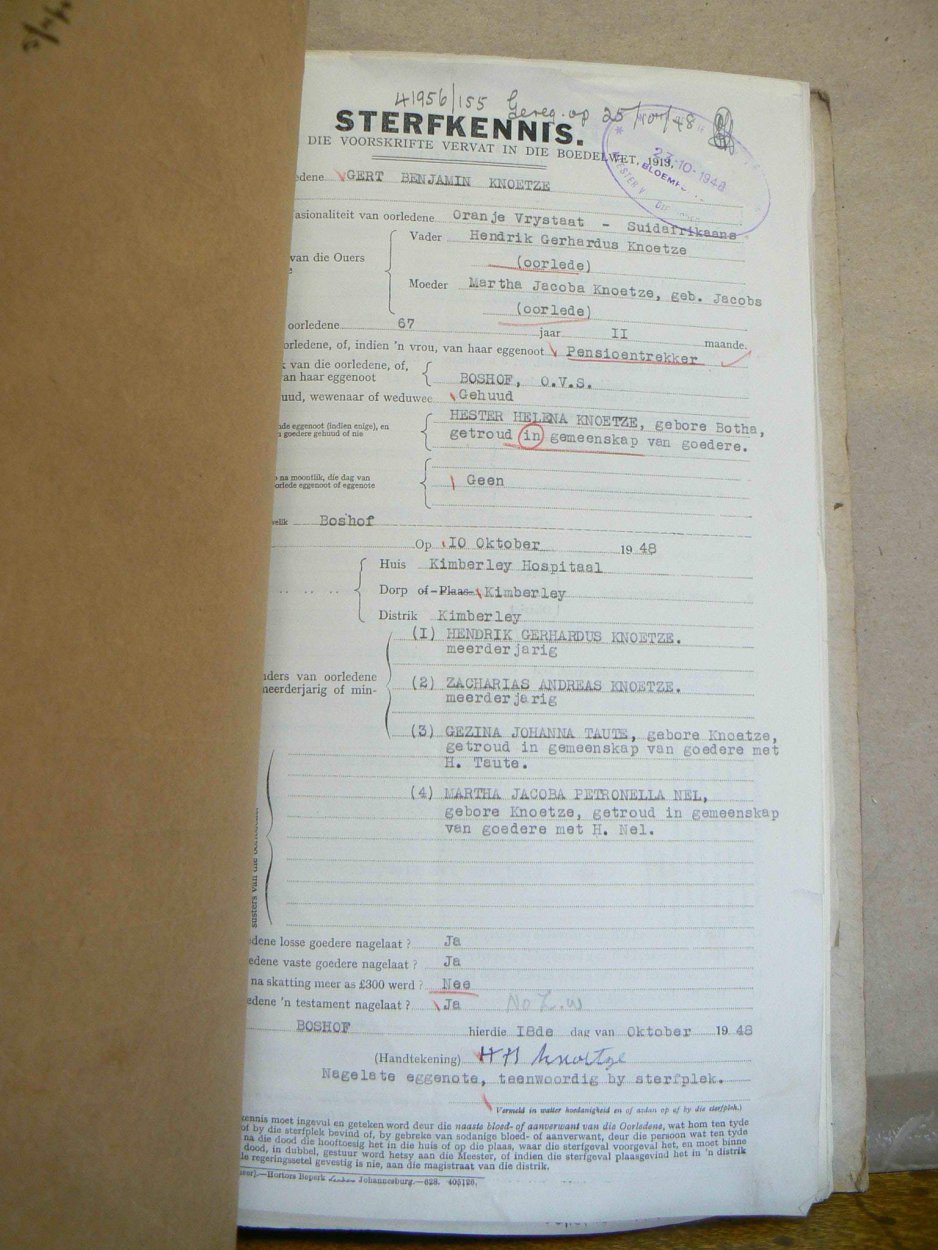 41956/155 Gereg. op 25/10/48
STERFKENNIS.
DIE VOORSKRIFTE VERVAT IN DIE BOEDELWET, 1913.
27-10-1948
BLOEMF
edene GERT BENJAMIN KNOETZE
asionaliteit van oorledene Oranje Vrystaat - Suidafrikaans
van die Ouers
Vader Hendrik Gerhardus Knoetze
(oorlede)
Moeder Martha Jacoba Knoetze, geb. Jacobs
(oorlede)
oorledene 67 jaar II maande.
orledene, of, indien 'n vrou, van haar eggenoot Pensioentrekker
k van die oorledene, of,
an haar eggenoot BOSHOF, O.V.S.
uud, wewenaar of weduwee Gehuud
nde eggenoot (indien enige), en HESTER HELENA KNOETZE, gebore Botha,
n goedere gehuud of nie getroud in gemeenskap van goedere.
o na moontlik, die dag van
orlede eggenoot of eggenote Geen
welik Boshof
Op IO Oktober 1948
Huis Kimberley Hospitaal
Dorp of Plaas Kimberley
Distrik Kimberley
nders van oorledene
meerderjarig of min-
(I) HENDRIK GERHARDUS KNOETZE.
meerderjarig
(2) ZACHARIAS ANDREAS KNOETZE.
meerderjarig
(3) GEZINA JOHANNA TAUTE, gebore Knoetze,
getroud in gemeenskap van goedere met
H. Taute.
(4) MARTHA JACOBA PETRONELLA NEL,
gebore Knoetze, getroud in gemeenskap
van goedere met H. Nel.
susters van die
edene losse goedere nagelaat ? Ja
edene vaste goedere nagelaat ? Ja
na skatting meer as £300 werd ? Nee
edene 'n testament nagelaat ? Ja No L.W
BOSHOF hierdie I8de dag van Oktober 1948
(Handtekening) HH Knoetze
Nagelate eggenote, teenwoordig by sterfplek.
Vermeld in watter hoedanigheid en of aldan op of by die sterfplek.)
kennis moet ingevul en geteken word deur die naaste bloed- of aanverwant van die Oorledene, wat hom ten tyde
of by die sterfplek bevind of, by gebreke van sodanige bloed- of aanverwant, deur die persoon wat ten tyde
na die dood die hooftoesig het in die huis of op die plaas, waar die sterfgeval voorgeval het, en moet binne
dood, in dubbel, gestuur word hetsy aan die Meester, of indien die sterfgeval plaasgevind het in 'n distrik
ie regeringssetel gevestig is nie, aan die magistraat van die distrik.
Hortors Beperk Johannesburg.—628. 405126.